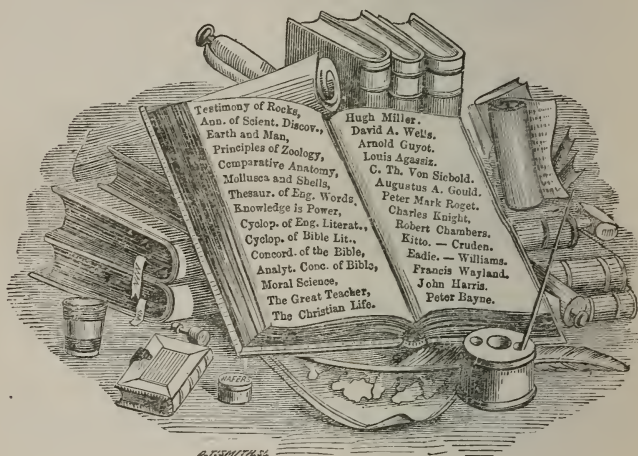 Testimony of Rocks,
Ann. of Scient. Discov.,
Earth and Man,
Principles of Zoology,
Comparative Anatomy,
Mollusca and Shells,
Thesaur. of Eng. Words.
Knowledge is Power,
Cyclop. of Eng. Literat.,
Cyclop. of Bible Lit.,
Concord. of the Bible,
Analyt. Conc. of Bible,
Moral Science,
The Great Teacher,
The Christian Life.
Hugh Miller.
David A. Wells.
Arnold Guyot.
Louis Agassiz.
C. Th. Von Siebold.
Augustus A. Gould.
Peter Mark Roget.
Charles Knight.
Robert Chambers.
Kitto. — Cruden.
Eadie. — Williams.
Francis Wayland.
John Harris.
Peter Bayne.
WAFERS